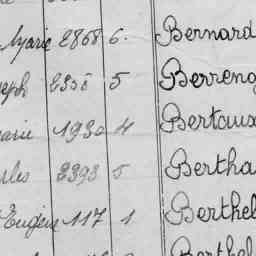 2868 6. Bernard
eph 2358 5 Berreng
arie 1930 4 Bertaux
rles 2393 5 Bertha
Eugène 117 1 Berthel
Berthel